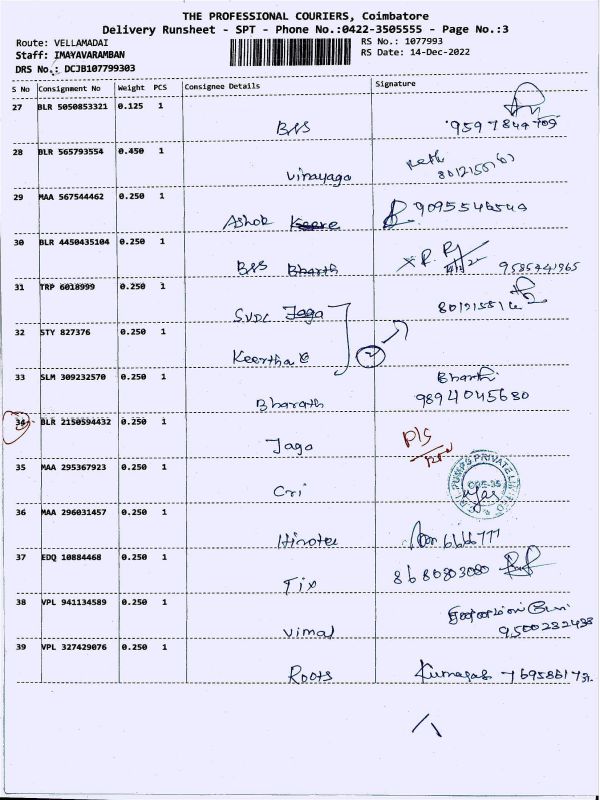 THE PROFESSIONAL COURIERS, Coimbatore
Delivery Runsheet - SPT - Phone No.:0422-3505555 - Page No.:3
Route: VELLAMADAI RS No.: 1077993
Staff: IMAYAVARAMBAN RS Date: 14-Dec-2022
DRS No.: DCJB107799303
S No Consignment No Weight PCS Consignee Details Signature
27 BLR 5050853321 0.125 1
BNS 9597844709
28 BLR 565793554 0.450 1
Vinayaga
29 MAA 567544462 0.250 1
Ashok 9095546549
30 BLR 4450435104 0.250 1
BNS Bharth 9585441965
31 TRP 6018999 0.250 1
SVDC Jaga
32 STY 827376 0.250 1
Keertha 2
33 SLM 309232570 0.250 1
Bharath Bharth
9894045680
34 BLR 2150594432 0.250 1
Jaga P/S
35 MAA 295367923 0.250 1
Cri PUMPS PRIVATE LIMITED
CBE-35
36 MAA 296031457 0.250 1
37 EDQ 10884468 0.250 1
Tix 8680803080
38 VPL 941134589 0.250 1
Vimal 9500232498
39 VPL 327429076 0.250 1
Roots